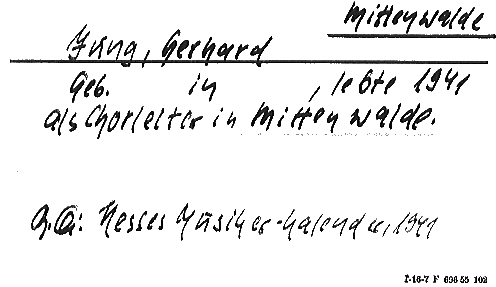 Mittenwalde
Jung, Gerhard
Geb. in , lebte 1941
als Chorleiter in Mittenwalde.
Hesses Musiker-Kalender, 1941
I-16-7 F 696 55 102